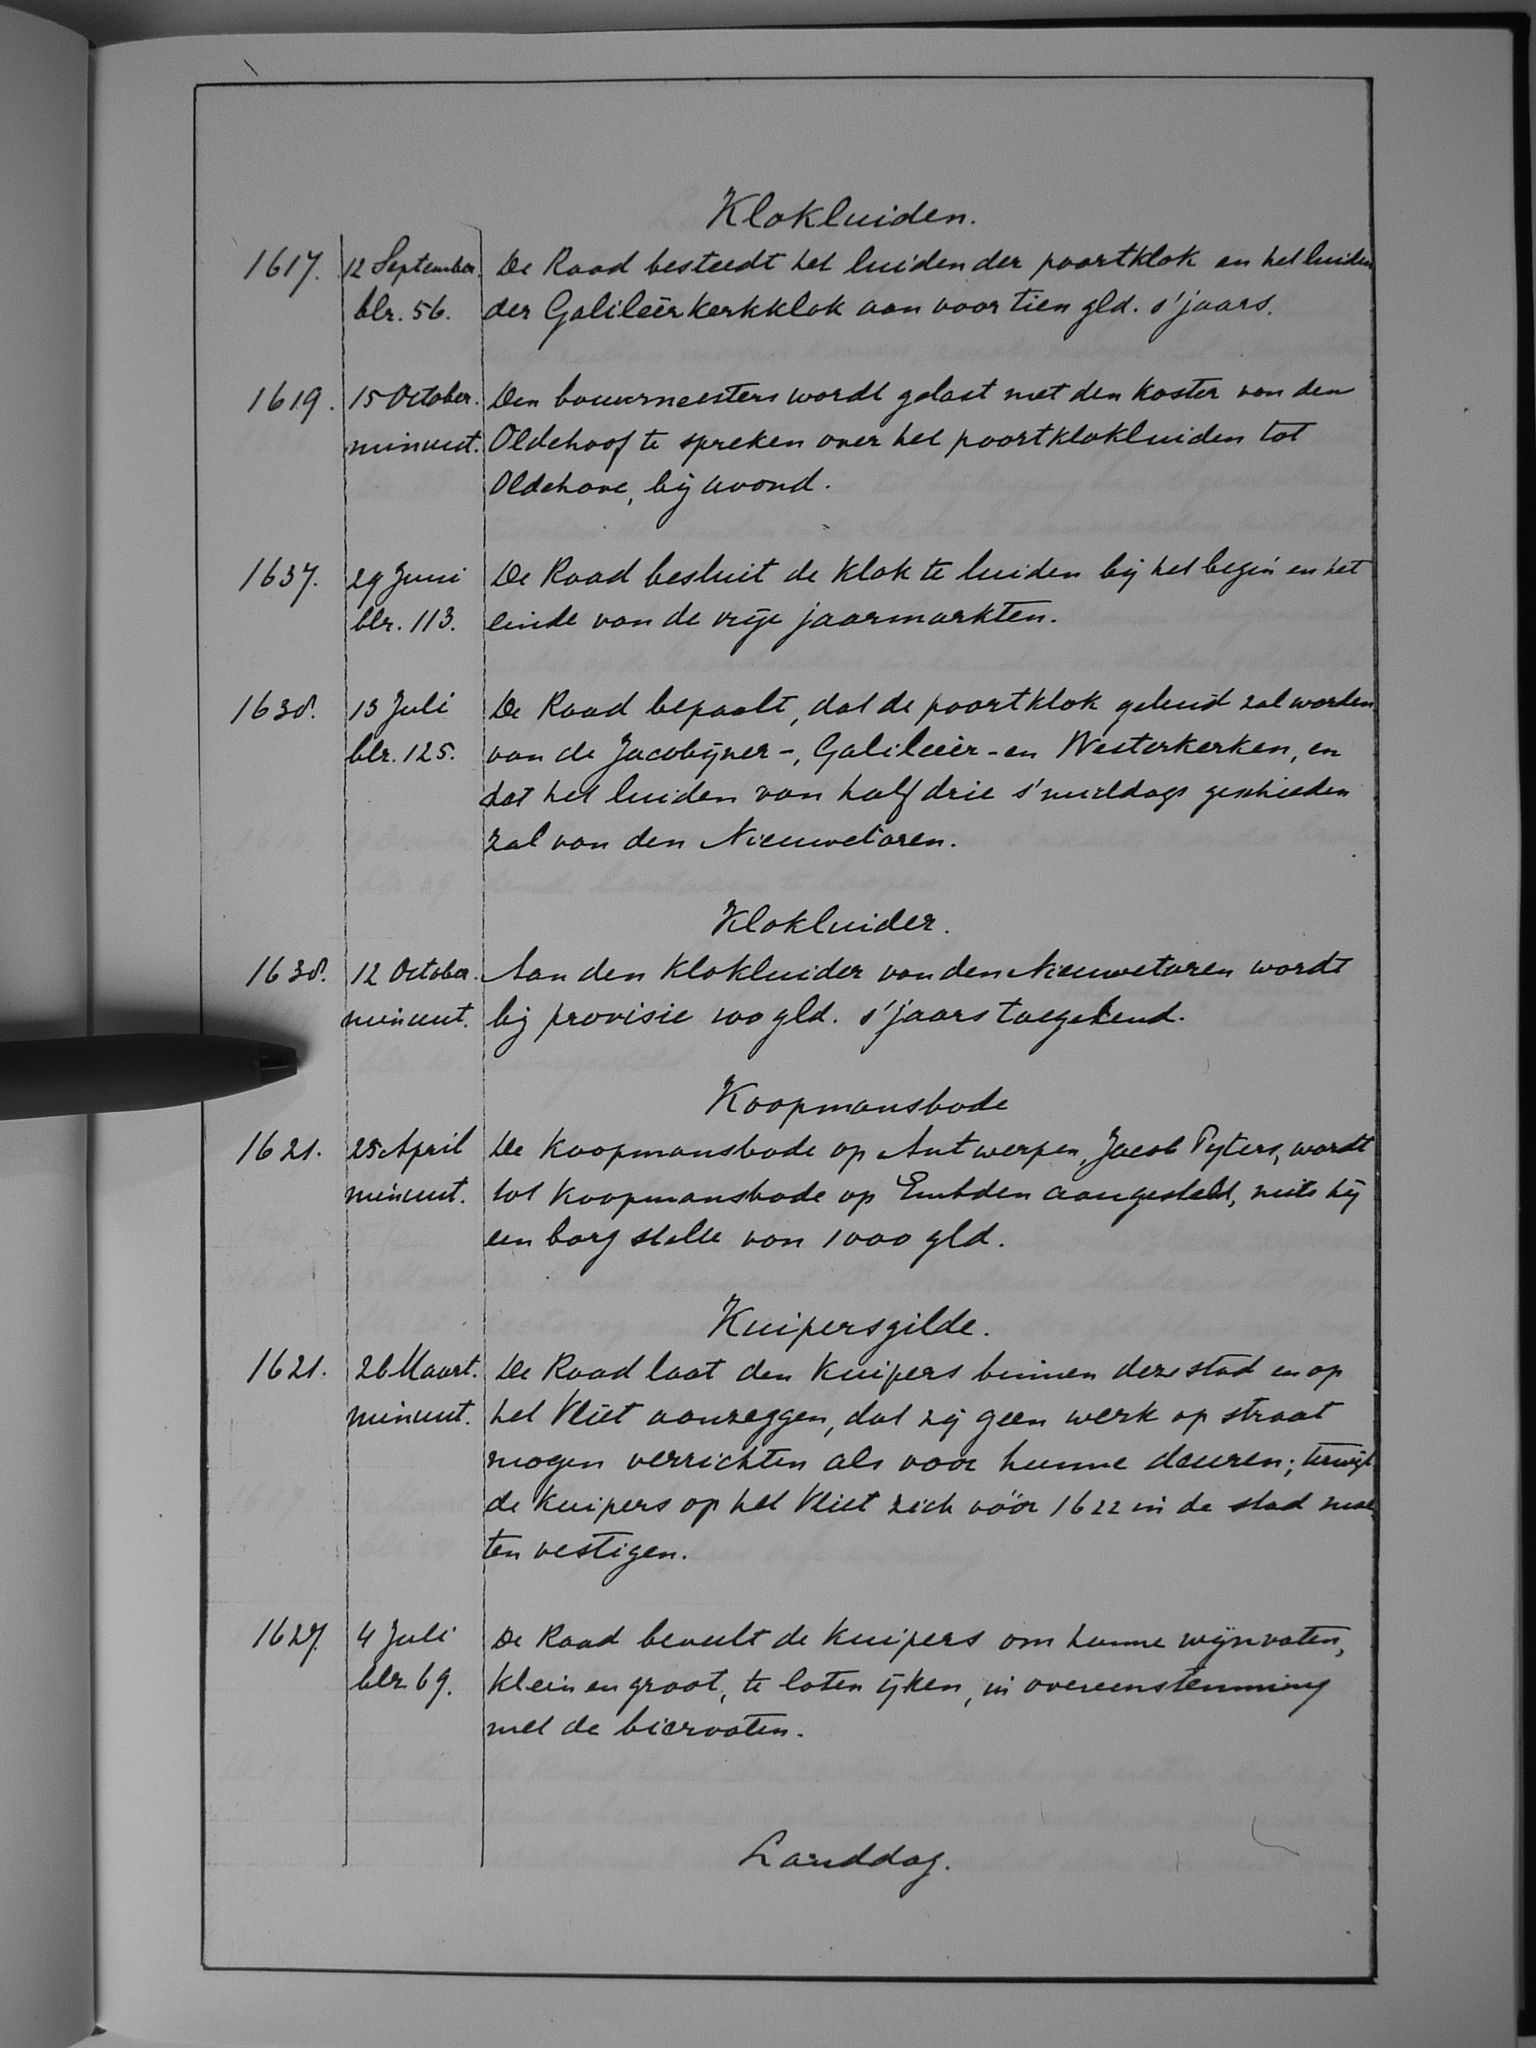 Klokluiden.
1617. 12 September. De Raad besteedt het luiden der poortklok en het luiden
blz. 56. der Galileërkerkklok aan voor tien gld. s'jaars.
1619. 15 October. Den bouwmeesters wordt gelast met den koster van den
minuut. Oldehoof te spreken over het poortklokluiden tot
Oldehove, bij avond.
1637. 29 Juni De Raad besluit de klok te luiden bij het begin en het
blz. 113. einde van de vrije jaarmarkten.
1638. 13 Juli De Raad bepaalt, dat de poortklok geluid zal worden
blz. 125. van de Jacobijner-, Galileër- en Westerkerken, en
dat het luiden van half drie s'middags geschieden
zal van den Nieuwetoren.
Klokluider.
1638. 12 October. Aan den klokluider van den Nieuwetoren wordt
minuut. bij provisie 100 gld. s'jaars toegekend.
Koopmansbode
1621. 25 April De koopmansbode op Antwerpen, Jacob Pyters, wordt
minuut. tot koopmansbode op Embden aangesteld, mits hij
een borg stelle van 1000 gld.
Kuipersgilde.
1621. 26 Maart. De Raad laat den kuipers binnen deze stad en op
minuut. het Vliet aanzeggen, dat zij geen werk op straat
mogen verrichten als voor hunne deuren; terwijl
de kuipers op het Vliet zich vóór 1622 in de stad moe-
ten vestigen.
1627 4 Juli De Raad beveelt de kuipers om hunne wijnvaten,
blz 69. klein en groot, te laten ijken, in overeenstemming
met de biervaten.
Landdag.